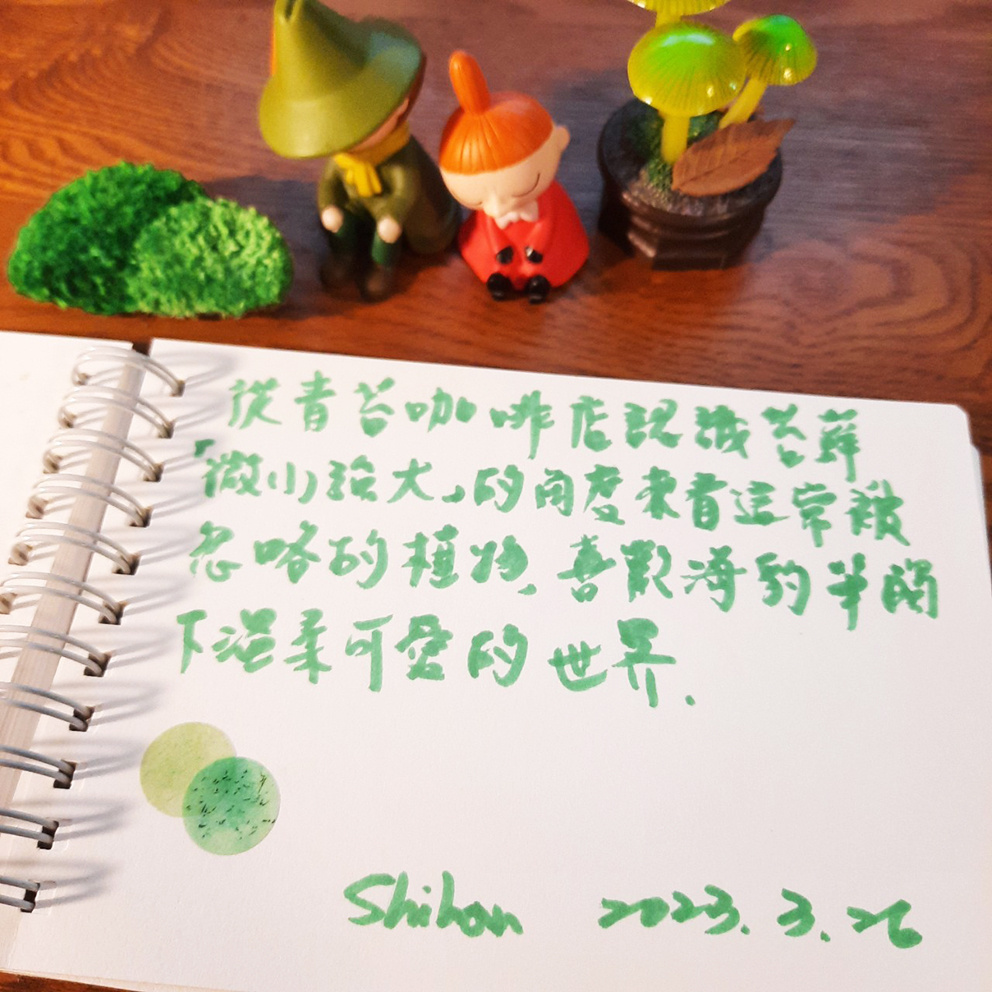 從青苔咖啡店認識苔蘚
「微小強大」的角度來看這常被
忽略的植物,喜歡海豹
下溫柔可愛的世界.
Shihan 2023.3.26